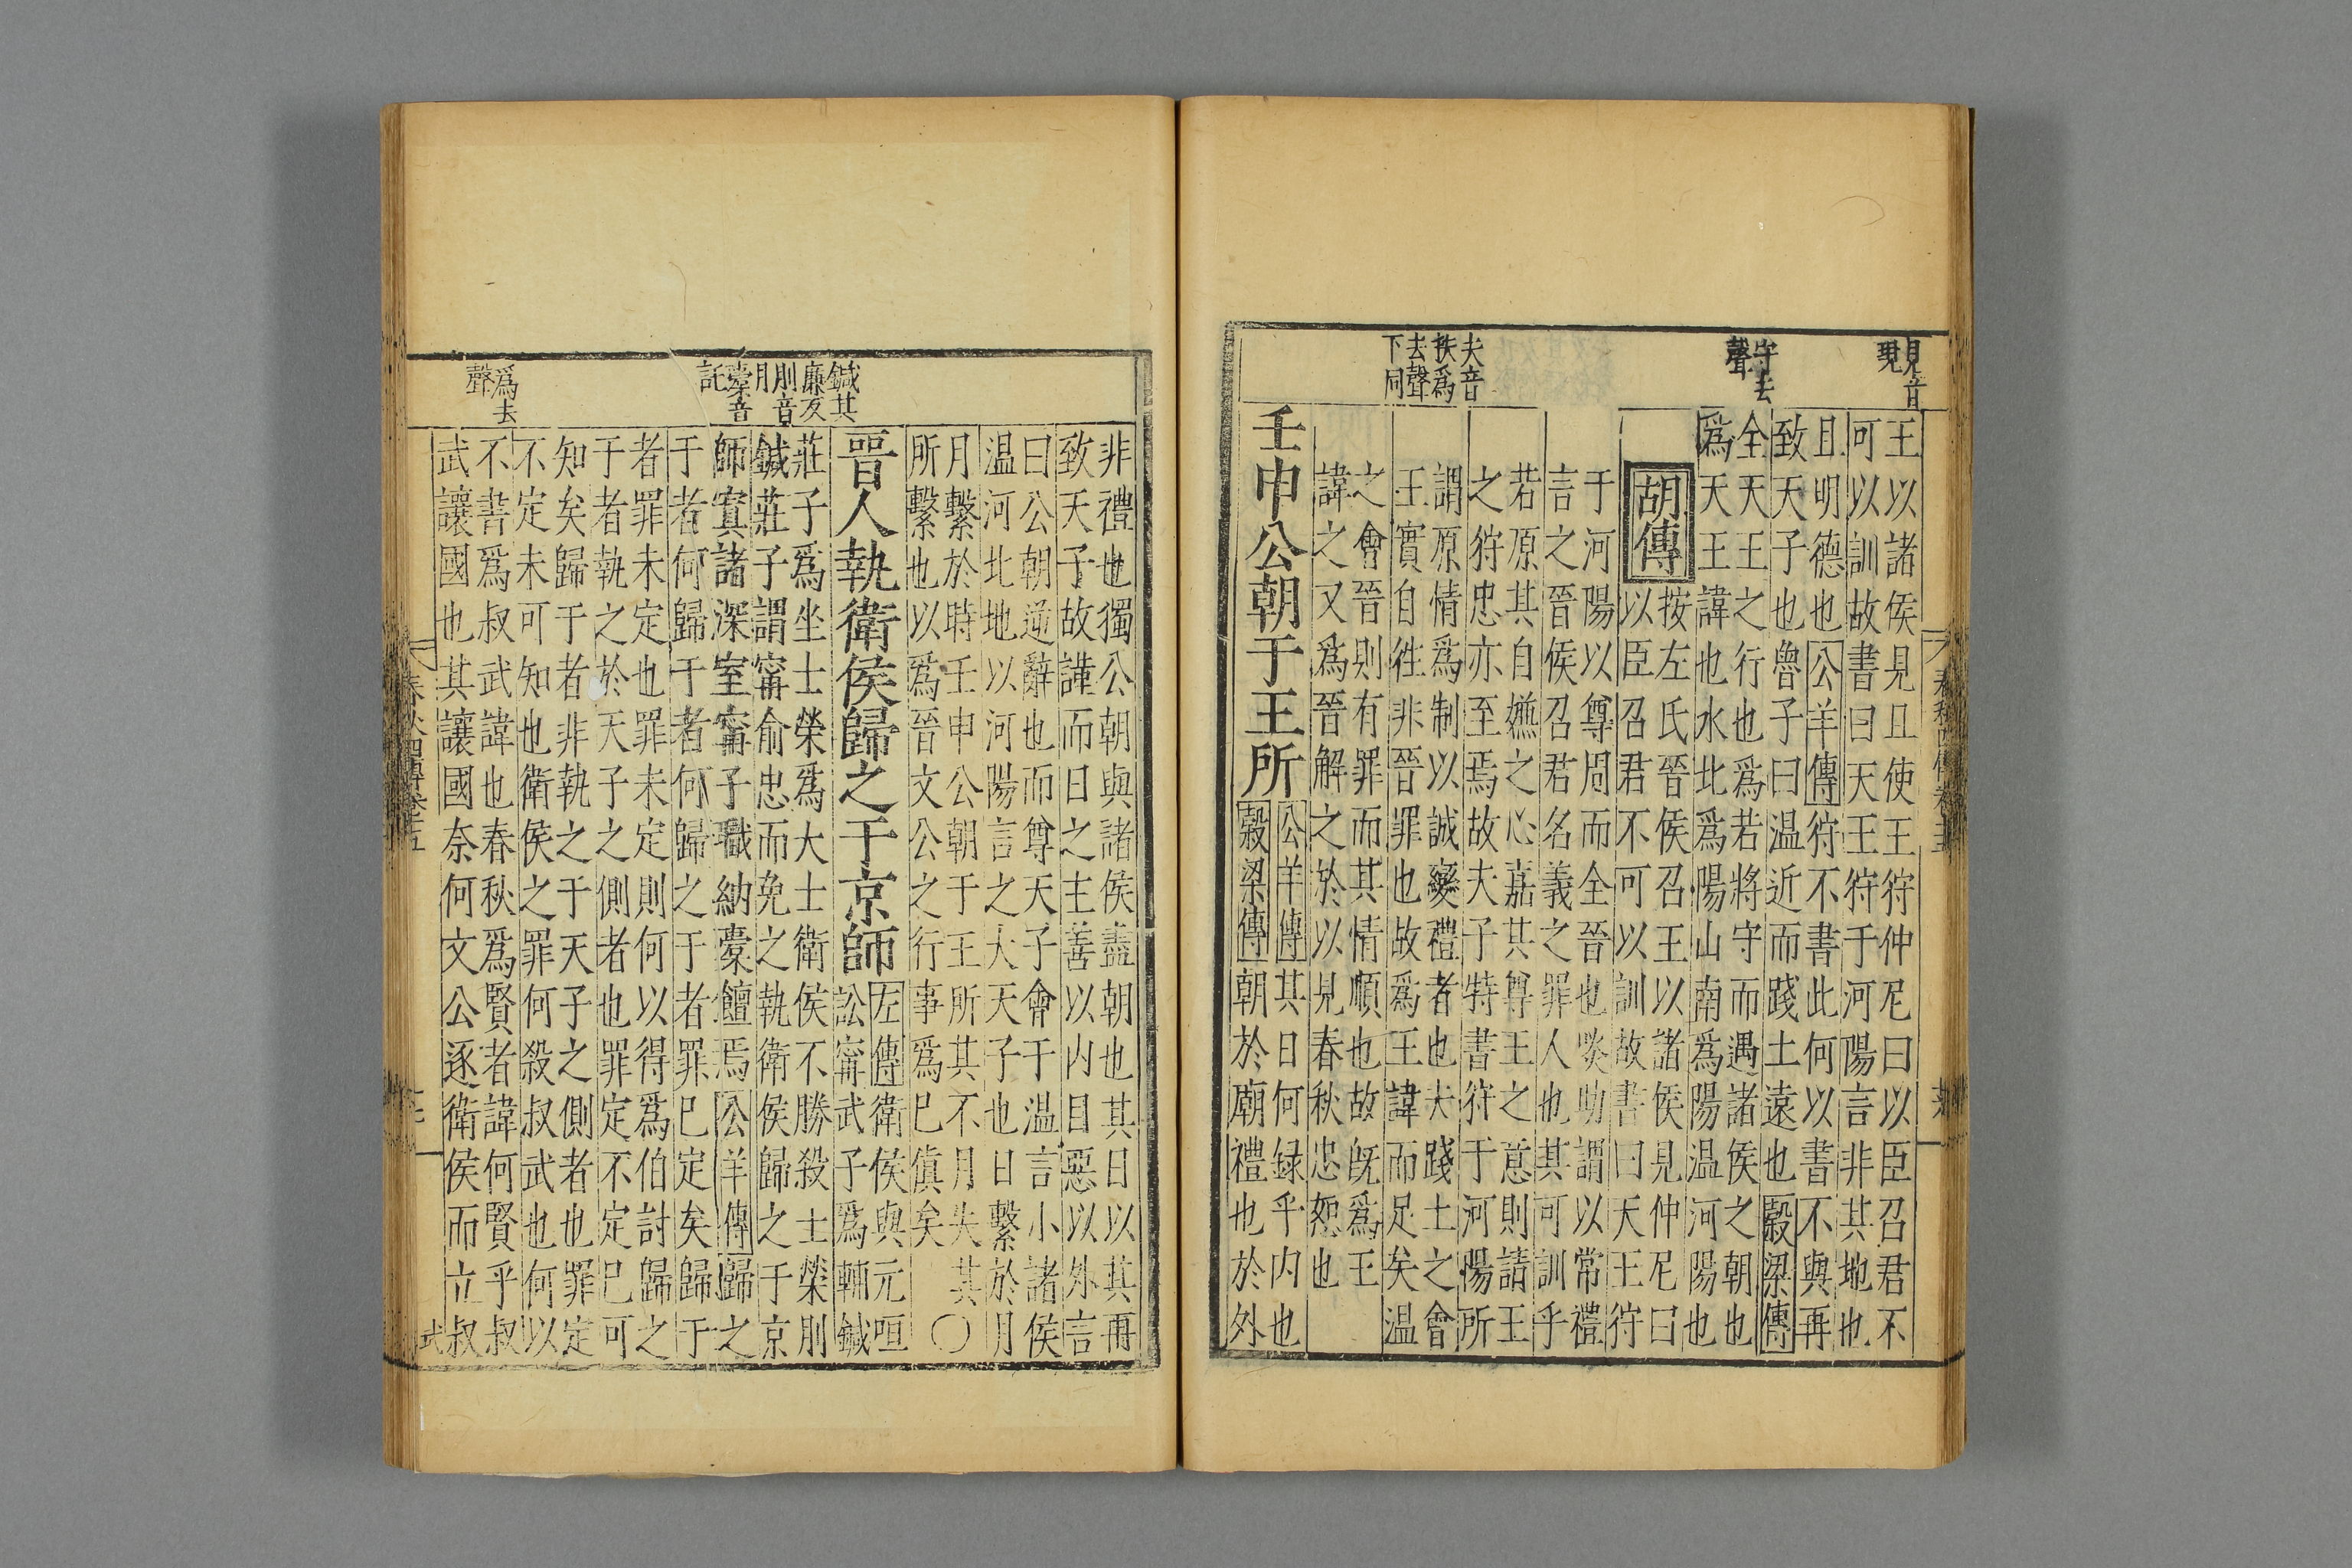 見音
現
守去
聲
夫音
扶爲
去聲
下同
王以諸侯見且使王狩仲尼曰以臣召君不
可以訓故書曰天王狩于河陽言非其地也
且明德也公羊傳狩不書此何以書不與再
致天子也魯子曰温近而踐土遠也穀梁傳
全天王之行也爲若將守而遇諸侯之朝也
爲天王諱也水北爲陽山南爲陽温河陽也
胡傳
按左氏晉侯召王以諸侯見仲尼曰
以臣召君不可以訓故書曰天王狩
于河陽以尊周而全晉也啖助謂以常禮
言之晉侯召君名義之罪人也其可訓乎
若原其自嫌之心嘉其尊王之意則請王
之狩忠亦至焉故夫子特書狩于河陽所
謂原情爲制以誠變禮者也夫踐土之會
王實自徃非晉罪也故爲王諱而足矣温
之會晉則有罪而其情順也故旣爲王
諱之又爲晉解之於以見春秋忠恕也
壬申公朝于王所
公羊傳其日何録乎内也
穀梁傳朝於廟禮也於外
春秋四傳卷十五
鍼其
廉反
刖音
月
橐音
託
爲去
聲
非禮也獨公朝與諸侯盡朝也其日以其再
致天子故謹而日之主善以内目惡以外言
曰公朝逆辭也而尊天子會于温言小諸侯
温河北地以河陽言之大天子也日繫於月
月繫於時壬申公朝于王所其不月失其
所繫也以爲晉文公之行事爲已傎矣 〇
晉人執衛侯歸之于京師
左傳衛侯與元咺
訟甯武子爲輔鍼
莊子爲坐士榮爲大士衛侯不勝殺士榮刖
鍼莊子謂甯俞忠而免之執衛侯歸之于京
師寘諸深室甯子職納橐饘焉公羊傳歸之
于者何歸于者何歸之于者罪已定矣歸于
者罪未定也罪未定則何以得爲伯討歸之
于者執之於天子之側者也罪定不定已可
知矣歸于者非執之于天子之側者也罪定
不定未可知也衛侯之罪何殺叔武也何以
不書爲叔武諱也春秋爲賢者諱何賢乎叔
武讓國也其讓國奈何文公逐衛侯而立叔
武
春秋四傳卷十五